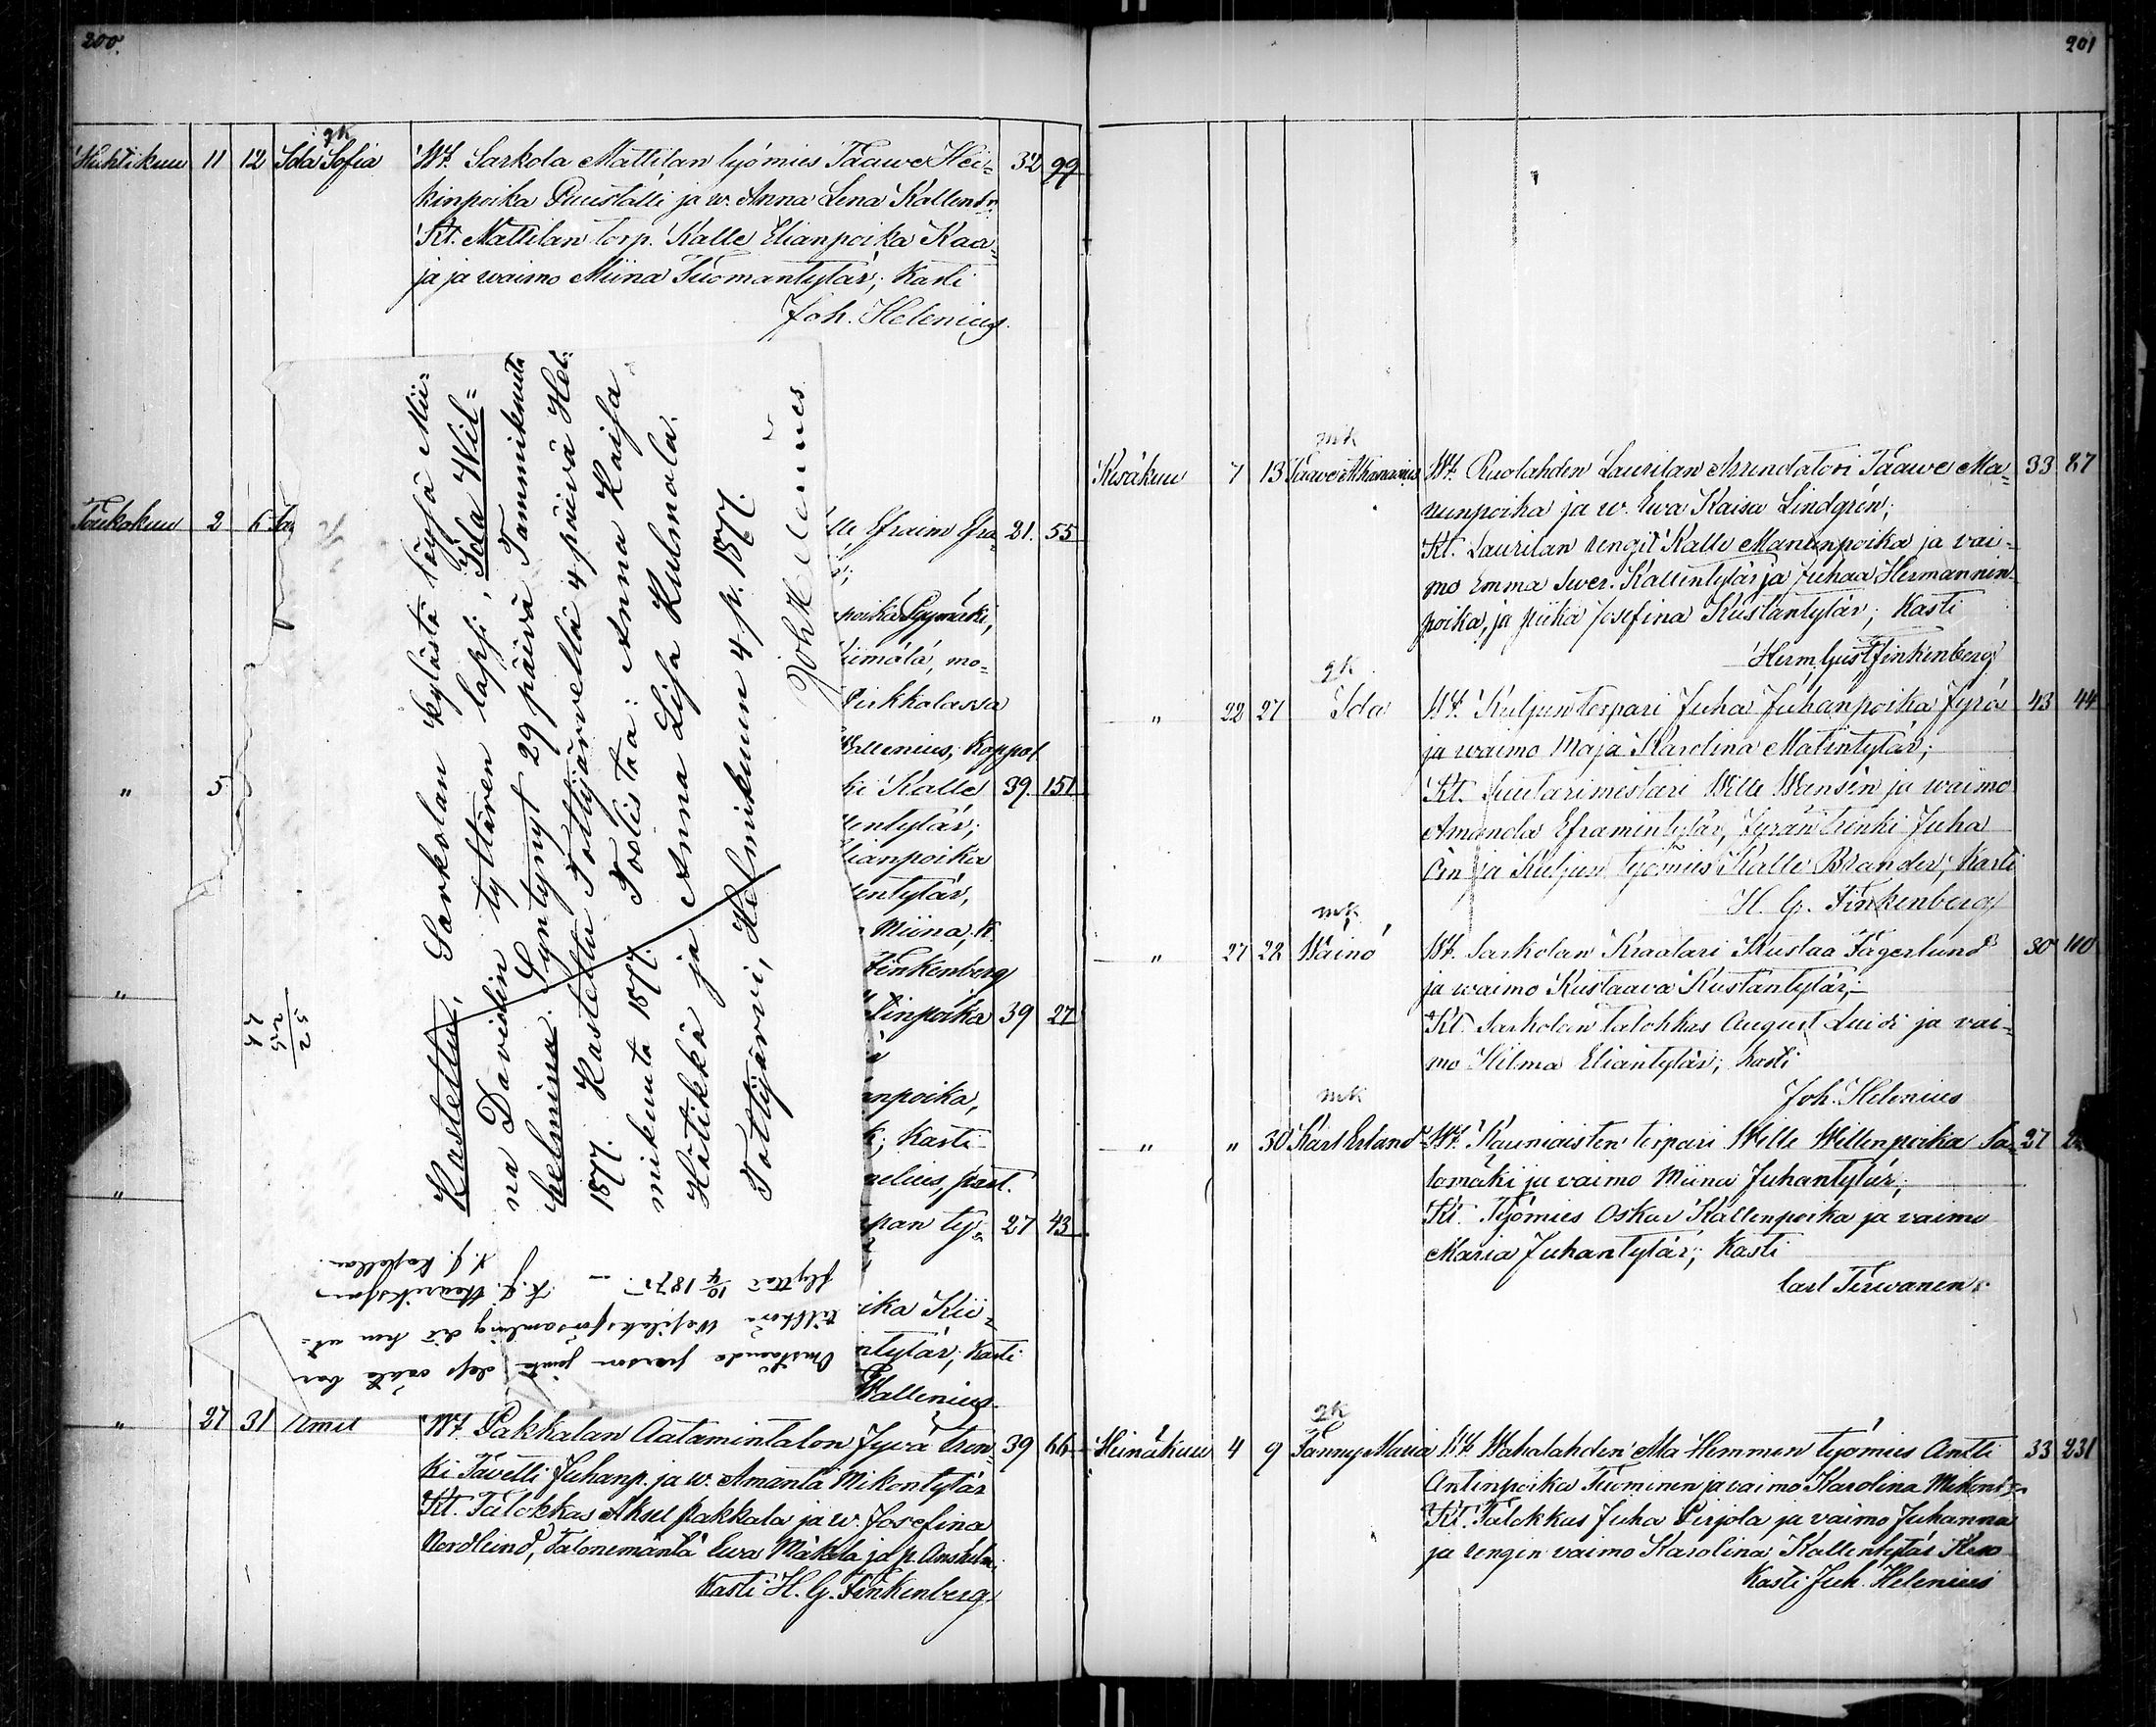 200.
gk
Huhtikuu 11 12 Ida Sofia W:t. Sarkola Mattilan työmies Taawe Hei= 32 99
kinpoika Ruustalli ja w. Anna Lena Kallent:r
Kt. Mattilan torp. Kalle Elianpoika Kaa=
ja ja waimo Miina Tuomantytär; Kasti
Joh. Helenius.
Toukokuu 2 6
lle Efraim Efra= 21. 55
poika Pyymäki,
mo=
Pirkkalassa
Wallenius, Koppal
" 5
ki Kalle 39. 151
lentytär;
lianpoika
entytär,
Miina, K.
Finkenberg
"
tinpoika 39 27
npoika,
k; Kasti
nelius, past.
"
pan ty= 27 43
ika Kii=
ntytär; Kasti
Wallenius.
Kastettu, Sarkolan kylästä Löysä Mii=
na Davidin tyttären lapsi, Ida Wil=
helmina. Syntynyt 29 päivä Tammikuuta
1877. Kastettu Tottijärvellä 4 päivä Hel=
mikuuta 1877. Todista: Anna Kaisa
Hätikkä ja Anna Lisa Kulmala.
Tottijärvi, Helmikuun 4 p. 1877.
Joh Helenius
Omstående person jemte dess oäkta barn
tillhöra Wesilaks församling dit hon ut=
flyttat 10/4 187
" 27 31 W:t. Pakkalan Aatamintalon Jyvä tren= 39 66
ki Tavetti Juhanp. ja w. Amanta Mikontytär
Kt. Talokkas Aksel Pakkala ja w. Josefina
Nordlund, Talonemäntä Eewa Mäkelä ja p. Anshelm.
Kasti H. G. Finkenberg.
201
mk
Kesäkuu 7 13 Taawe Athanasius W:t. Ruolahden Laurilan Arendatori Taawe Ma= 33 87
nunpoika ja w. Ewa Kaisa Lindgrén;
Kt. Laurilan rengit Kalle Manunpoika ja vai=
mo Emma Sver. Kallentytär ja Juhaa Hermannin=
poika, ja piika Josefina Kustantytär; Kasti
Herm. Gust. Finkenberg
gk
" 22 27 Ida W:t. Kuljun torpari Juha Juhanpoika Jyrä 43 44
ja waimo Maja Karolina Matintytär;
Kt. Suutarimestari Wille Wansén ja waimo
Amanda Eframintytär, Jyrän trenki Juha
Ön ja Kuljun työmies Kalle Brander; Kasti
H. G. Finkenberg
mk
" 27 28 Wäinö W:t. Sarkolan Kraatari Kustaa Fagerlund 30 110
ja waimo Kustaava Kustantytär;
Kt. Sarkolan talokkas August Luidi ja vai=
mo Hilma Eliantytär; Kasti
Joh. Helenius
mk
" " 30 Karl Erland W:t. Kauniaisten torpari Wille Willenpoika Sa= 27
lomäki ja vaimo Miina Juhantytär;
Kt. Työmies Oskar Kallenpoika ja vaimo
Maria Juhantytär; Kasti
Carl Terwanen.
gk
Heinäkuu 4 9 Fanny Maria W:t. Wakalahden Ala Hemmin työmies Antti 33 231
Antinpoika Tuominen ja vaimo Karolina Mikont:r
Kt. Talokkas Juha Pirjola ja vaimo Juhanna
ja rengin vaimo Karolina Kallentytär
Kasti Joh. Helenius